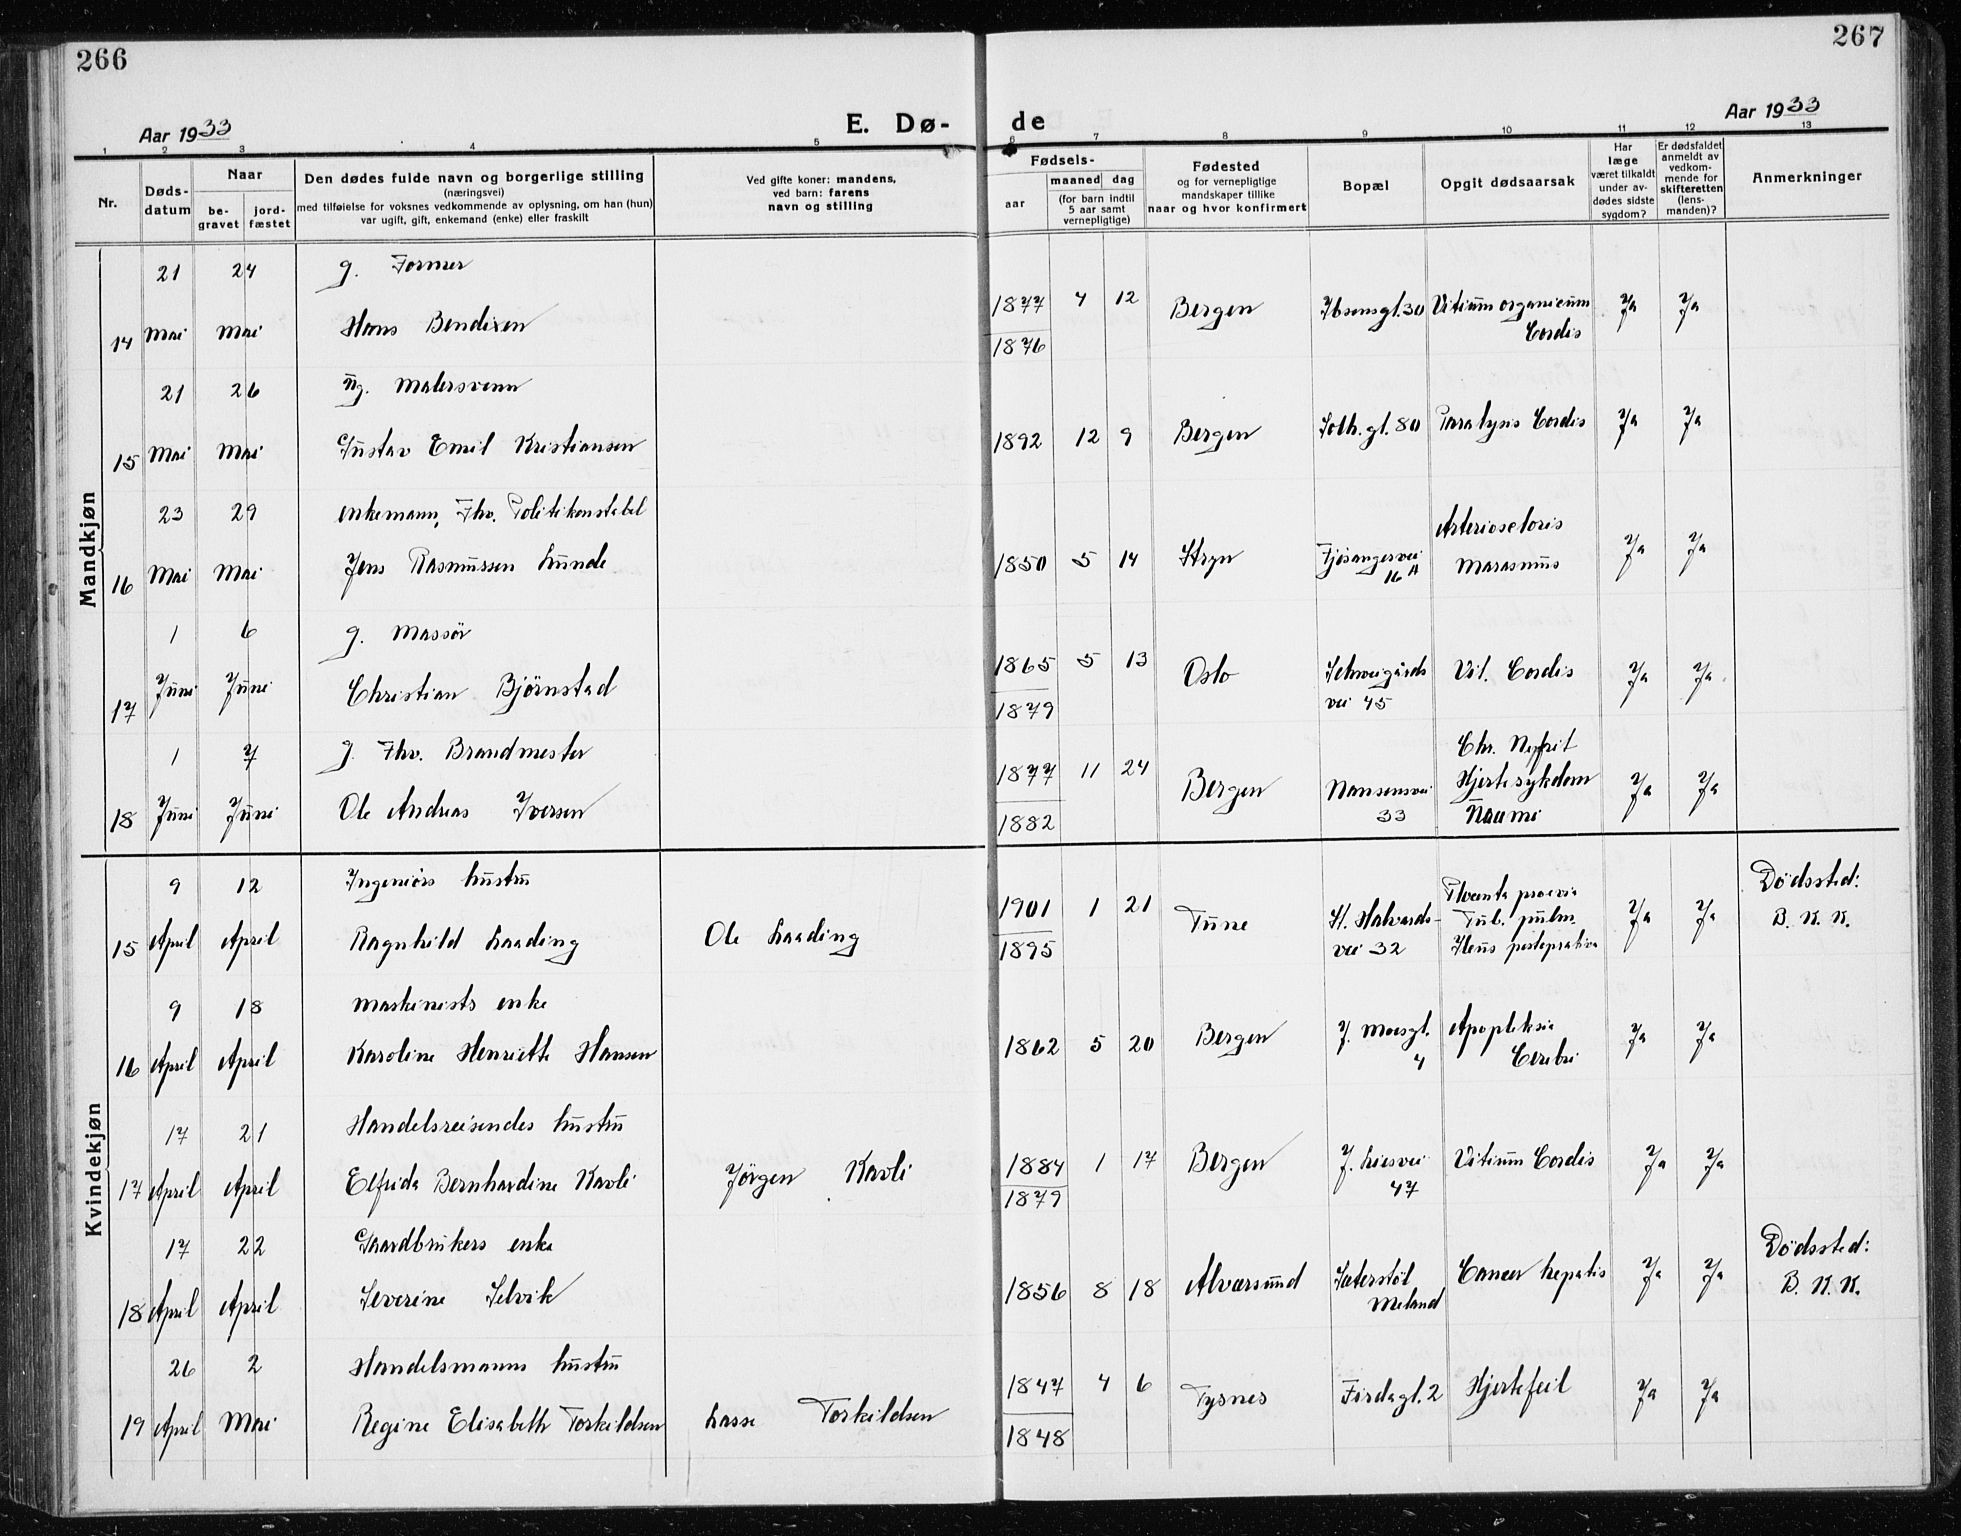 266
267
Aar 1933
E. Dø-
de
Aar 1933
1 2 3 4 5 6 7 8 9 10 11 12 13
Nr.
Døds-
datum
Naar
be-
gravet
jord-
fæstet
Den dødes fulde navn og borgerlige stilling
(næringsvei)
med tilføielse for voksnes vedkommende av oplysning, om han (hun)
var ugift, gift, enkemand (enke) eller fraskilt
Ved gifte koner: mandens,
ved barn: farens
navn og stilling
Fødsels-
aar
maaned dag
(for barn indtil
5 aar samt
vernepligtige)
Fødested
og for vernepligtige
mandskaper tillike
naar og hvor konfirmert
Bopæl
Opgit dødsaarsak
Har
læge
været tilkaldt
under av-
dødes sidste
sygdom?
Er dødsfaldet
anmeldt av
vedkom-
mende for
skifteretten
(lens-
manden)?
Anmerkninger
Mandkjøn
21 24 g. Former
14 Mai Mai Hans Bendixen 1877 4 12 Bergen Ibsensgt. 30 Vitium organicum Ja Ja
1876 Cordis
21 26 ug. Malersvenn
15 Mai Mai Gustav Emil Kristiansen 1892 12 9 Bergen Solh.gt. 80 Paralysis Cordis Ja Ja
23 29 enkemann, Fhv. Politikonstabel Arterioscloris
16 Mai Mai Jens Rasmussen Lunde 1850 5 14 Stryn Fjøsangervei Marasmus Ja Ja
16 A
1 6 g. Massør
17 Juni Juni Christian Bjørnstad 1865 5 13 Oslo Schweigårds Vit. Cordis Ja Ja
1879 vei 45
1 7 g. Fhv. Brandmester Chr. Nefrit
18 Juni Juni Ole Andreas Iversen 1877 11 24 Bergen Nansensvei Hjertesykdom Ja Ja
1882 33
Kvindekjøn
9 12 Ingeniørs hustru Placenta praevia Dödssted:
15 April April Ragnhild Laading Ole Laading 1901 1 21 Tune St. Halvards- Tub. pulm. Ja Ja B. K. K.
1895 vei 32 Ileus
9 18 Maskinists enke
16 April April Karoline Henriette Hansen 1862 5 20 Bergen J. Moesgt. Apopleksia Ja Ja
4 Cerebri
17 21 Handelsreisendes hustru
17 April April Elfrida Bernhardine Kavli Jörgen Kavli 1884 1 17 Bergen J. Liesvei Vitium Cordis Ja Ja
1879 47
17 22 Gaardbrukers enke Dödssted:
18 April April Severine Selvik 1856 8 18 Alversund Sæterstöl Cancer hepatis Ja Ja B. K. K.
Meland
26 2 Handelsmanns hustru
19 April Mai Regine Elisabeth Torkildsen Lasse Torkildsen 1847 4 6 Tysnes Firdagt. 2 Hjertefeil Ja Ja
1848